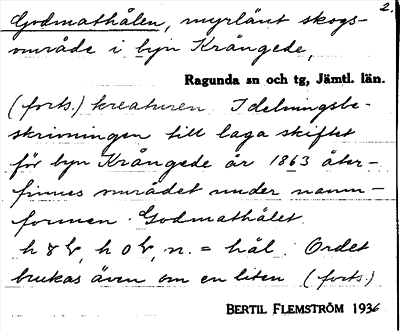 2.
Godmathålen, myrlänt skogs-
område i byn Krångede,
Ragunda sn och tg, Jämtl. län.
(forts.) kreaturen. I delningsbe-
skrivningen till laga skiftet
för byn Krångede år 1863 åter-
finnes området under namn-
formen Godmathålet.
n. = hål. Ordet
brukas även om en liten (forts.)
BERTIL FLEMSTRÖM 1936